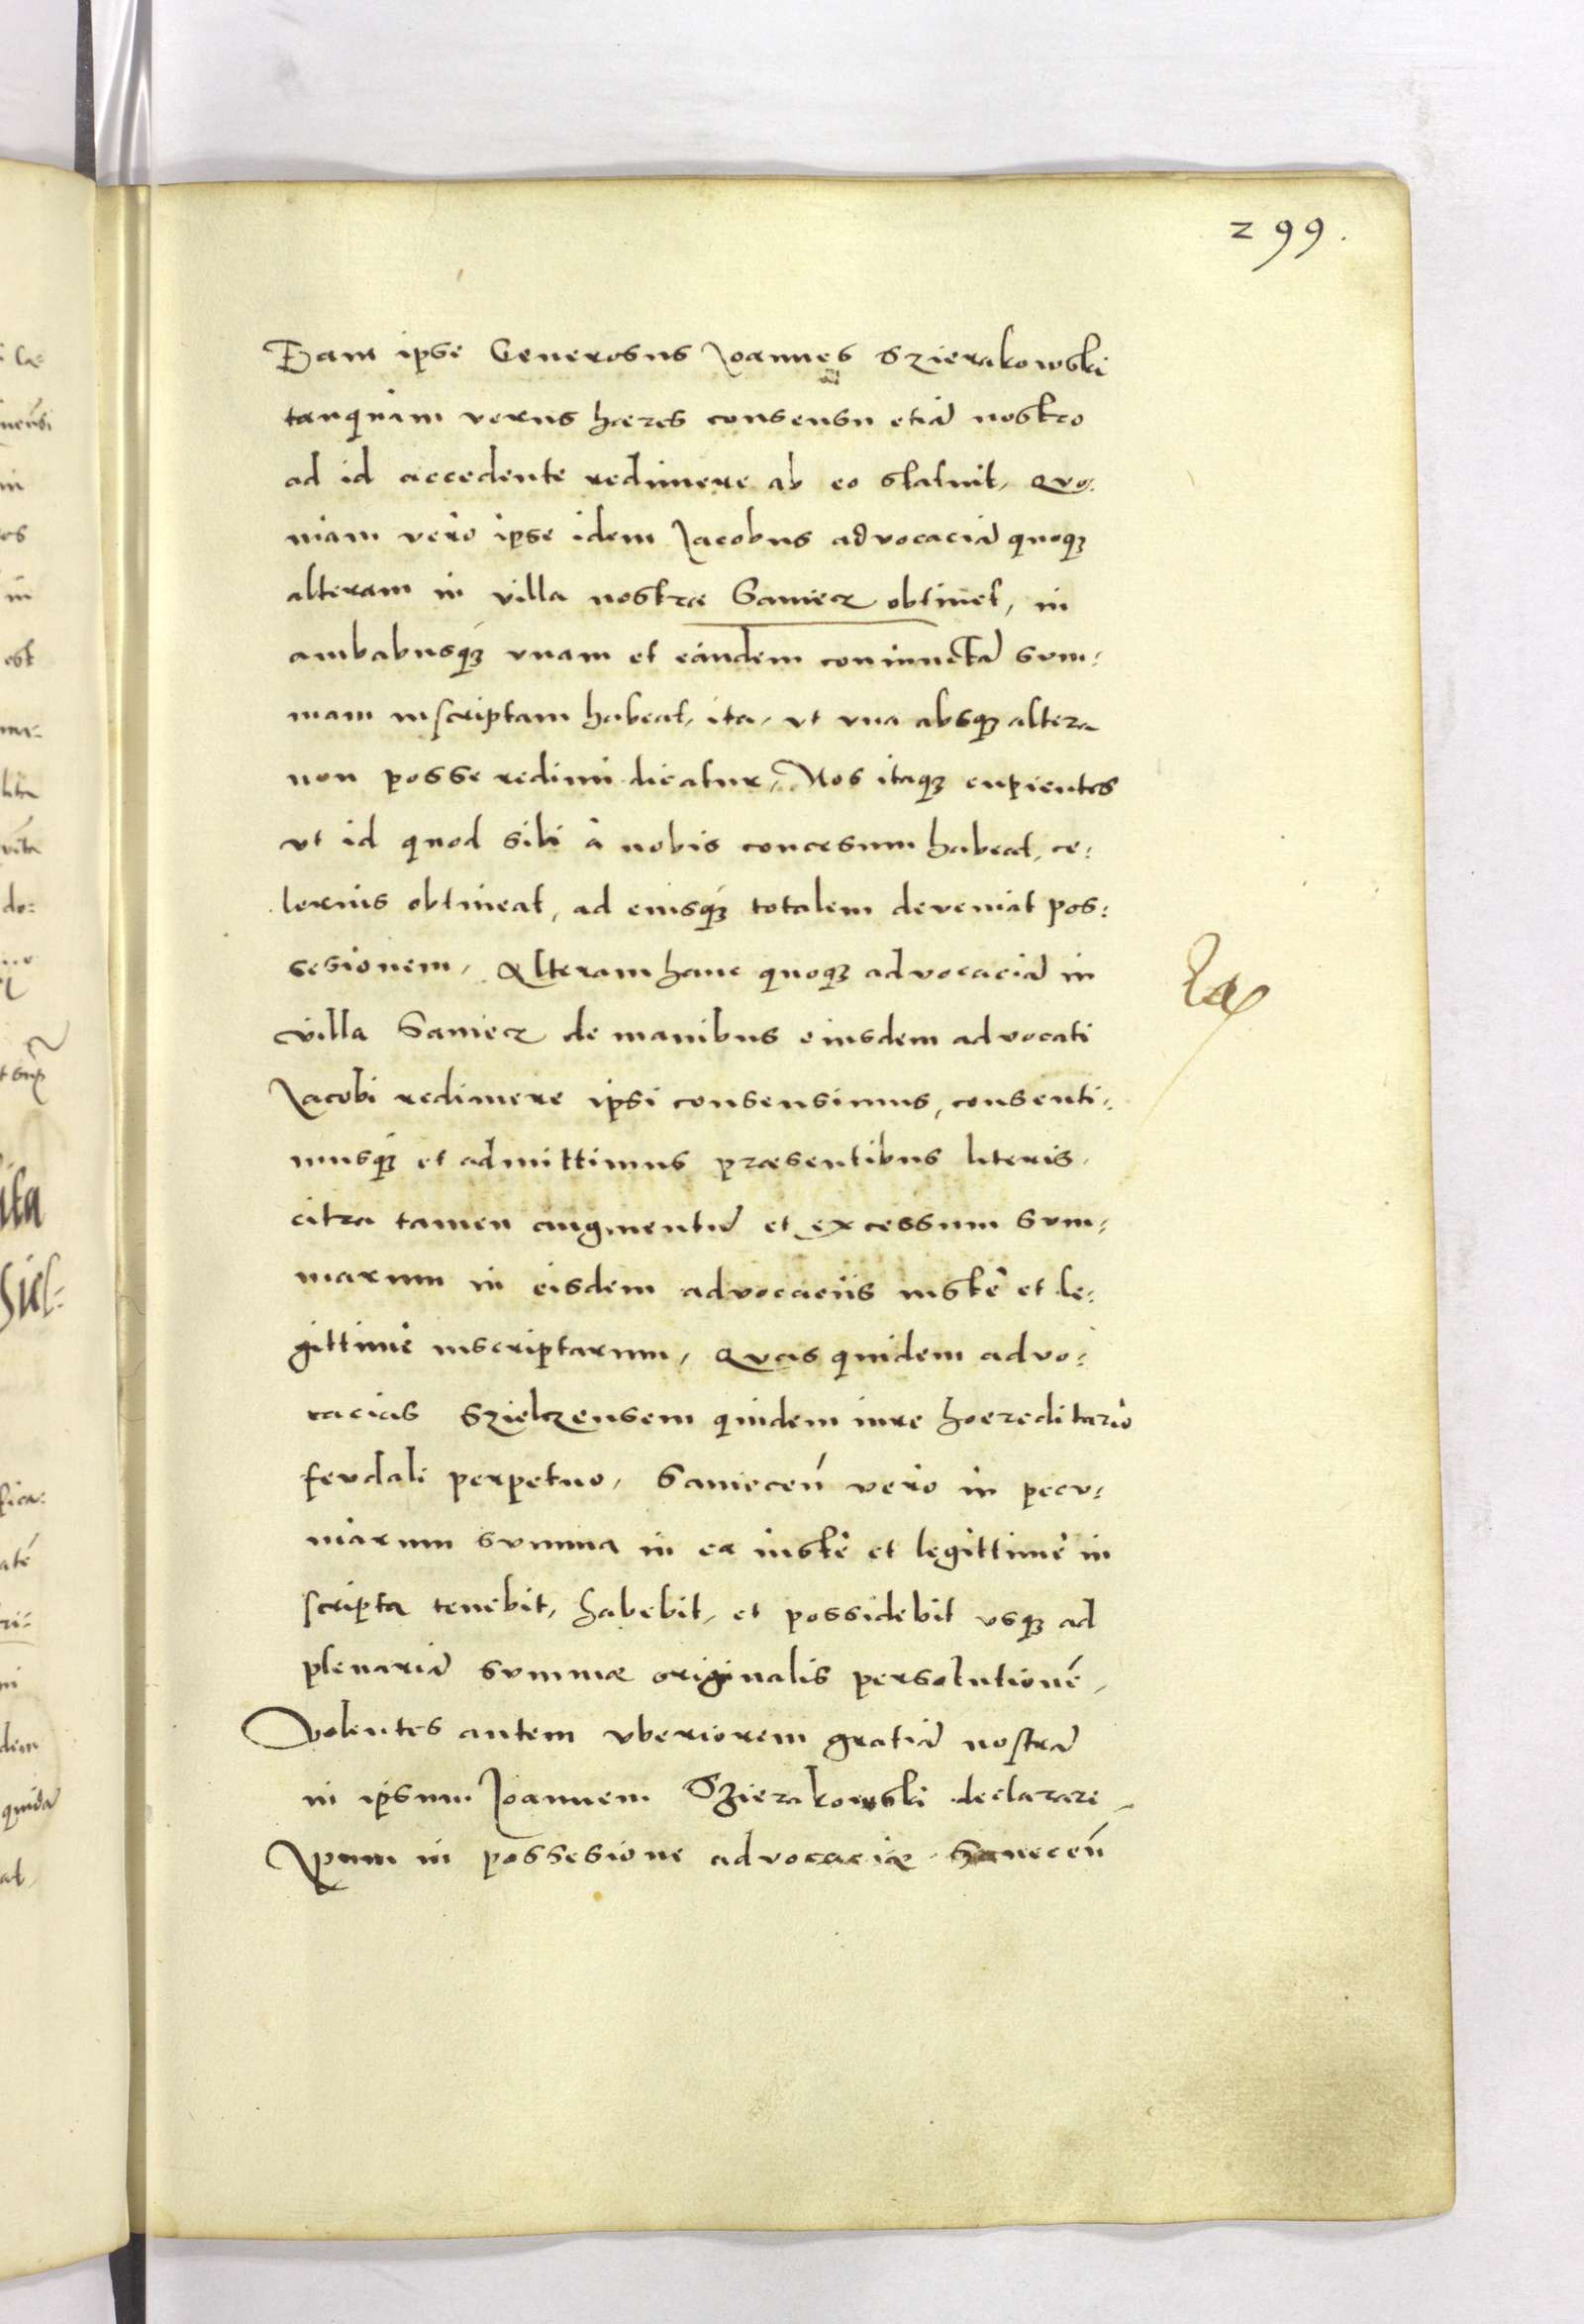 299.
Eam ipse Generosus Ioannes Szierakowski
tanquam verus hæres consensu etiã nostro
ad id accedente redimere ab eo statuit, Quo:
niam verò ipse idem Iacobus advocaciã quoqꝫ
alteram in villa nostra Saniecz obtinet, in
ambabusqꝫ vnam et eandem coniunctã sum:
mam inscriptam habeat, ita, vt vna absqꝫ altera
non posse redimi dicatur, Nos itaqꝫ cupientes
vt id quod sibi à nobis concesum habeat, ce:
lerius obtineat, ad eiusqꝫ totalem deveniat pos:
sesionem, Alteram hanc quoqꝫ advocaciã in
villa Saniecz de manibus eiusdem advocati
Iacobi redimere ipsi consensimus, consenti:
musqꝫ et admittimus præsentibus literis,
citra tamen augmentũ et excessum sum:
marum in eisdem advocaciis iustè et le:
gittimè inscriptarum, Quas quidem advo:
cacias Szielczensem quidem iure hoereditario
feudali perpetuo, Saniecen̄ verò in pecu:
niarum summa in ea iustè et legittimè in
scripta tenebit, habebit, et possidebit usqꝫ ad
plenariã summæ originalis persolutionẽ,
Volentes autem vberiorem gratiã nostrã
in ipsum Ioannem Szierakowski declarare,
Ipsum in possesione advocaciæ Saniecen̄